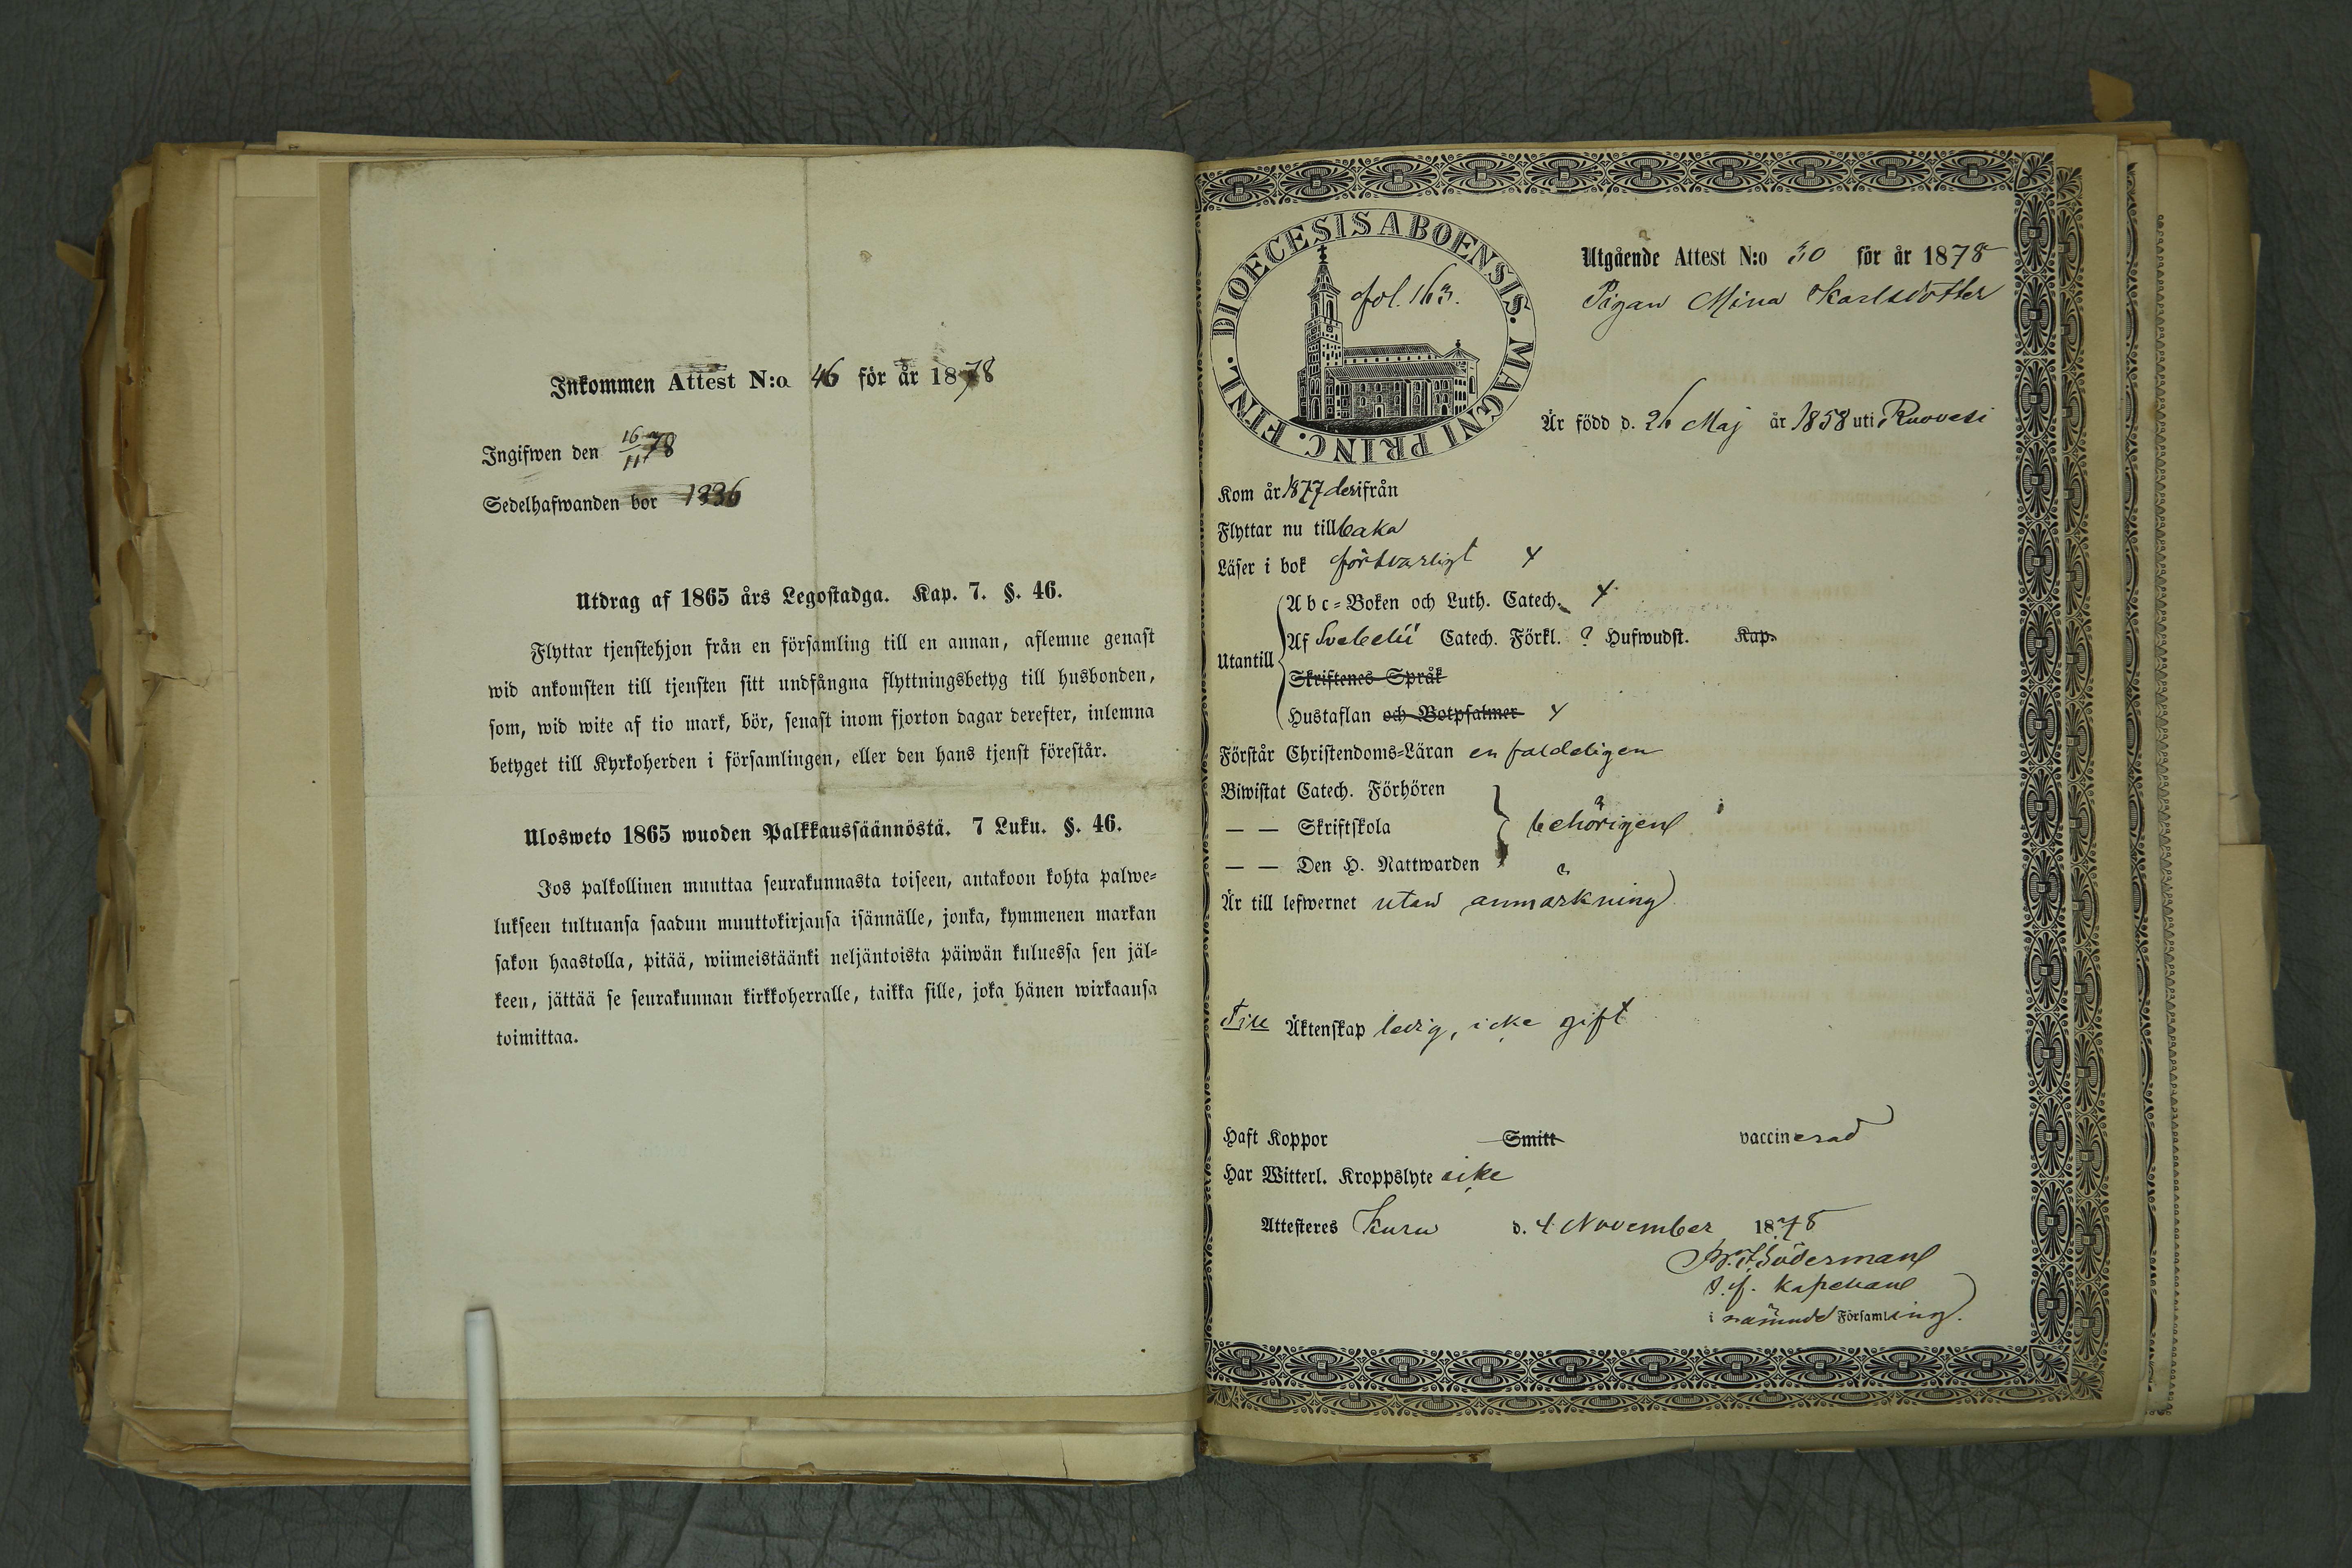 Inkommen Attest N:o 46 för år 1878
Ingifwen den 16/11 78
Sedelhafwanden bor 1336
Utdrag af 1865 års Legostadga. Kap. 7. §. 46.
Flyttar tjenstehjon från en församling till en annan, aflemne genast
wid ankomsten till tjensten sitt undfångna flyttningsbetyg till husbonden,
som, wid wite af tio mark, bör, senast inom fjorton dagar derefter, inlemna
betyget till Kyrkoherden i församlingen, eller den hans tjenst förestår.
Ulosweto 1865 wuoden Palkkaussäännöstä. 7 Luku. §. 46.
Jos palkollinen muuttaa seurakunnasta toiseen, antakoon kohta palwe-
lukseen tultuansa saadun muuttokirjansa isännälle, jonka, kymmenen markan
sakon haastolla, pitää, wiimeistäänki neljäntoista päiwän kuluessa sen jäl-
keen, jättää se seurakunnan kirkkoherralle, taikka sille, joka hänen wirkaansa
toimittaa.
DIOECESIS ABOENSIS. MAGNI PRINC. FINL.
fol. 163.
Utgående Attest N:o 30 för år 1878
Pigan Mina Karlsdotter
Är född d. 26 Maj år 1858 uti Ruovesi
Kom år 1877 derifrån
Flyttar nu tillbaka
Läser i bok försvarligt 4
Utantill
Abc-Boken och Luth. Catech. 4
Af Svebelii Catech. Förkl. ? Hufwudst. Kap.
Skriftenes Språk
Hustaflan och Botpsalmer 4
Förstår Christendoms-Läran enfaldeligen
Biwistat Catech. Förhören
— — Skriftskola behörigen
— — Den H. Nattwarden
Är till lefwernet utan anmärkning
Till Äktenskap ledig, icke gift
Haft Koppor Smitt vaccinerad
Har Witterl. Kroppslyte icke
Attesteres Kuru d. 4 November 1878
Söderman
v. f. Kapellan
i nämnde Församling.